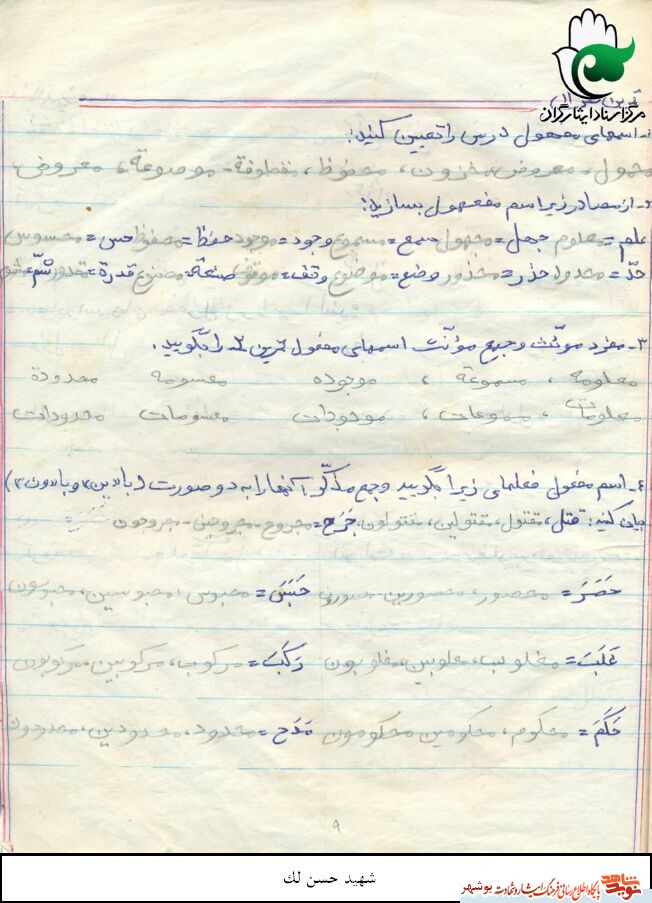 مرکز اسناد ایثارگران
۱- اسمهای مفعول درس را تعیین کنید:
محمول، معروض، مخزون، محفوظ، مقطوفة، موضوعة، معروض
۲- از مصادر زیر اسم مفعول بسازید:
علم = معلوم جهل = مجهول سمع = مسموع وجود = موجود حفظ = محفوظ حس = محسوس
حدّ = محدود حذر = محذور وضع = موضوع وقف = موقوف صنعة = مصنوع قدرة = مقدور شمّ =
۳- مفرد مونث و جمع مؤنث اسمهای مفعول تمرین ۲ را بگویید.
معلومه ، مسموعة ، موجوده مقسومه محدودة
معلومات ، مسموعات ، موجودات مقسومات محدودات
۴- اسم مفعول فعلهای زیر را بگویید و جمع مذکر آنها را به دو صورت (با «ین» و با «ون»)
بیان کنید: قتل، مقتول، مقتولین، مقتولون جَرَحَ = مجروح - مجروحین - مجروحون
حَصَرَ = محصور، محصورین حَبَسَ = محبوس، محبوسین، محبوسون
غَلَبَ = مغلوب، مغلوبین، مغلوبون رَکَبَ = مرکوب، مرکوبین، مرکوبون
حَکَمَ = محکوم، محکومین محکومون مَدَحَ =
۹
شهید حسن لك
نوید شاهد پایگاه اطلاع رسانی فرهنگ ایثار و شهادت بوشهر